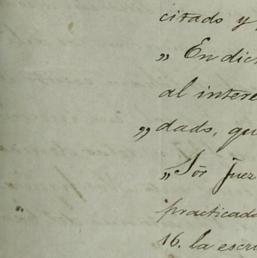 citado y
„ En dic
al intere
„ dado, qu
„ Sōr Juez
practicado
16. la escri